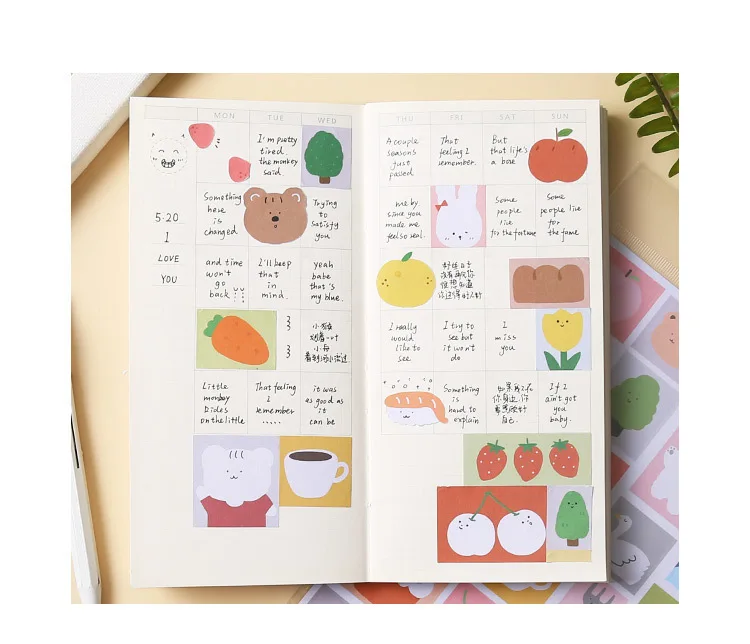 MON TUE WED
I'm pretty
tired
the monkey
said.
5.20
I
LOVE
YOU
Something
here
is
changed
Trying
to
satisfy
you
and time
won't
go
back
I'll keep
that
in
mind.
yeah
babe
that's
my blue.
Little
monkey
Dides
on the little
That feeling
I
remember
.....
it was
as good as
it
can be
THU FRI SAT SUN
A couple
seasons
just
passed
That
feeling I
remember.
But
that life's
a bore
me by
since you
made me
feel so real.
Some
people
live
for the fortune
Some
people live
for
the fame
I really
would
like to
see
I try to
see but
it won't
do
I
miss
you
Something
is
hard to
explain
如果我不在
你身边,你
自己.
If I
ain't got
you
baby.